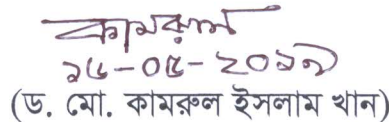 কামরুল
১৫-০৫-২০১৭
(ড. মো. কামরুল ইসলাম খান)